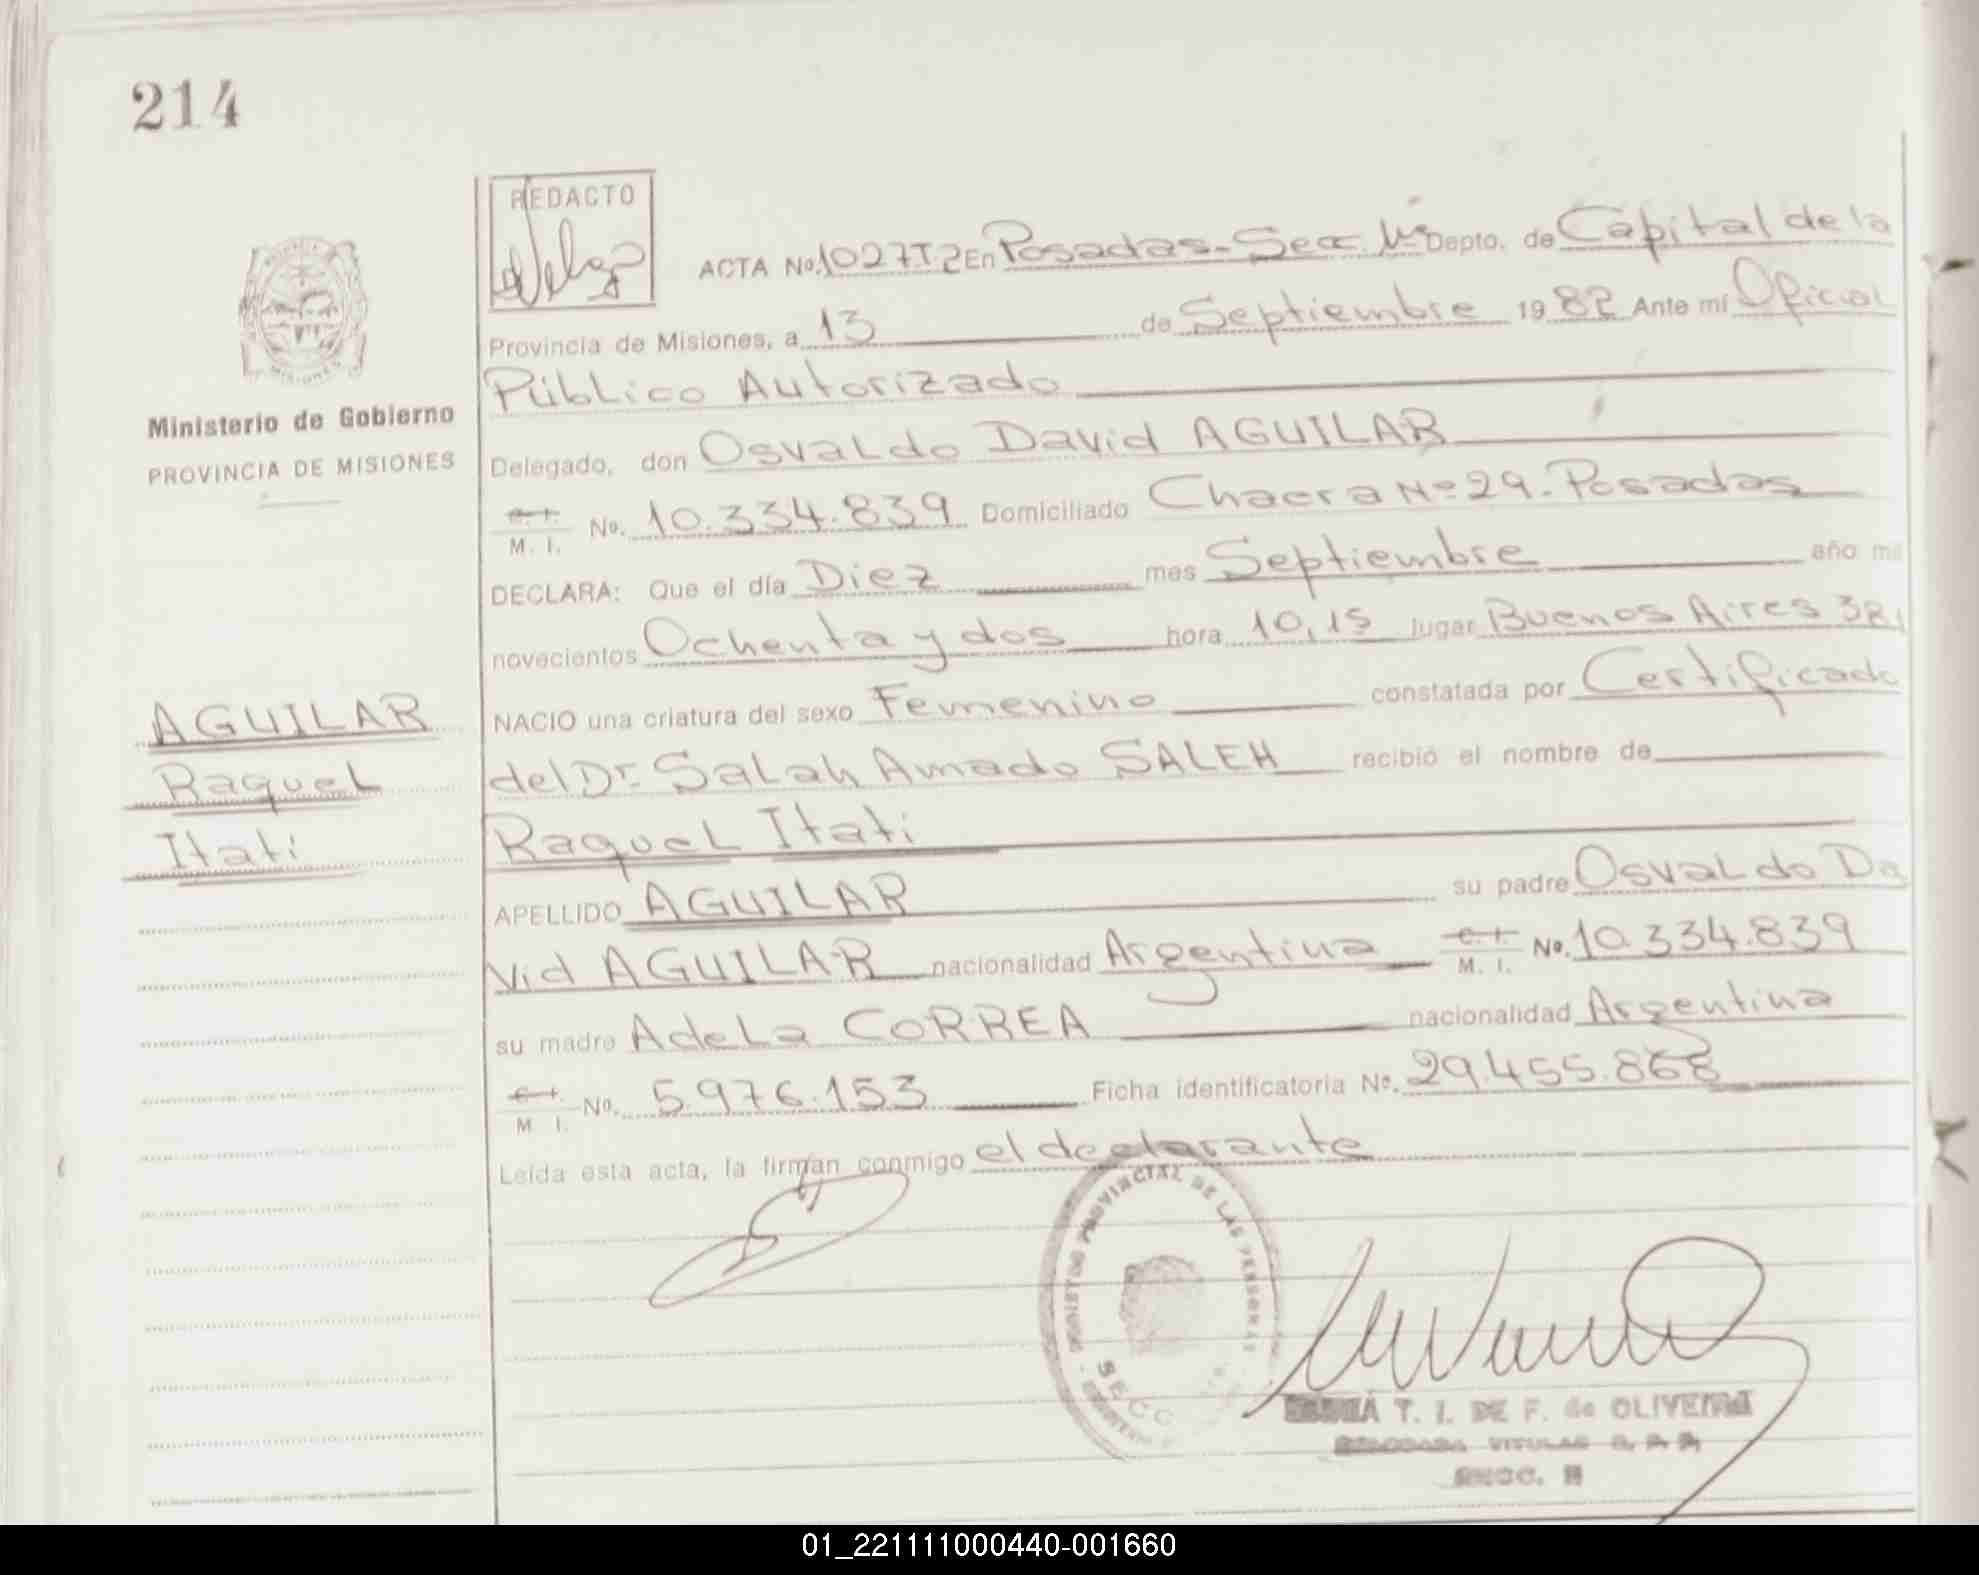 214
REDACTO
ACTA No. 1027T.2 En Posadas - Secc. 1ª Depto. de Capital de la
Provincia de Misiones, a 13 de Septiembre 1982 Ante mí Oficial
Público Autorizado
Delegado, don Osvaldo David AGUILAR
C. I.
M. I. No. 10.334.839 Domiciliado Chacra Nº 29. Posadas
DECLARA: Que el día Diez mes Septiembre año mil
novecientos Ochenta y dos hora 10,15 lugar Buenos Aires
NACIO una criatura del sexo Femenino constatada por Certificado
del Dr. Salah Amado SALEH recibió el nombre de
Raquel Itati
APELLIDO AGUILAR su padre Osvaldo Da
vid AGUILAR nacionalidad Argentina C. I. No. 10.334.839
M. I.
su madre Adela CORREA nacionalidad Argentina
C. I.
M. I. No. 5.976.153 Ficha identificatoria No. 29.455.868
Leída esta acta, la firman conmigo el declarante
MISIONES
Ministerio de Gobierno
PROVINCIA DE MISIONES
AGUILAR
Raquel
Itati
PROVINCIAL DE LAS PERSONAS
SECC
T. I. DE F. de OLIVEIRA
SECC.
01_221111000440-001660